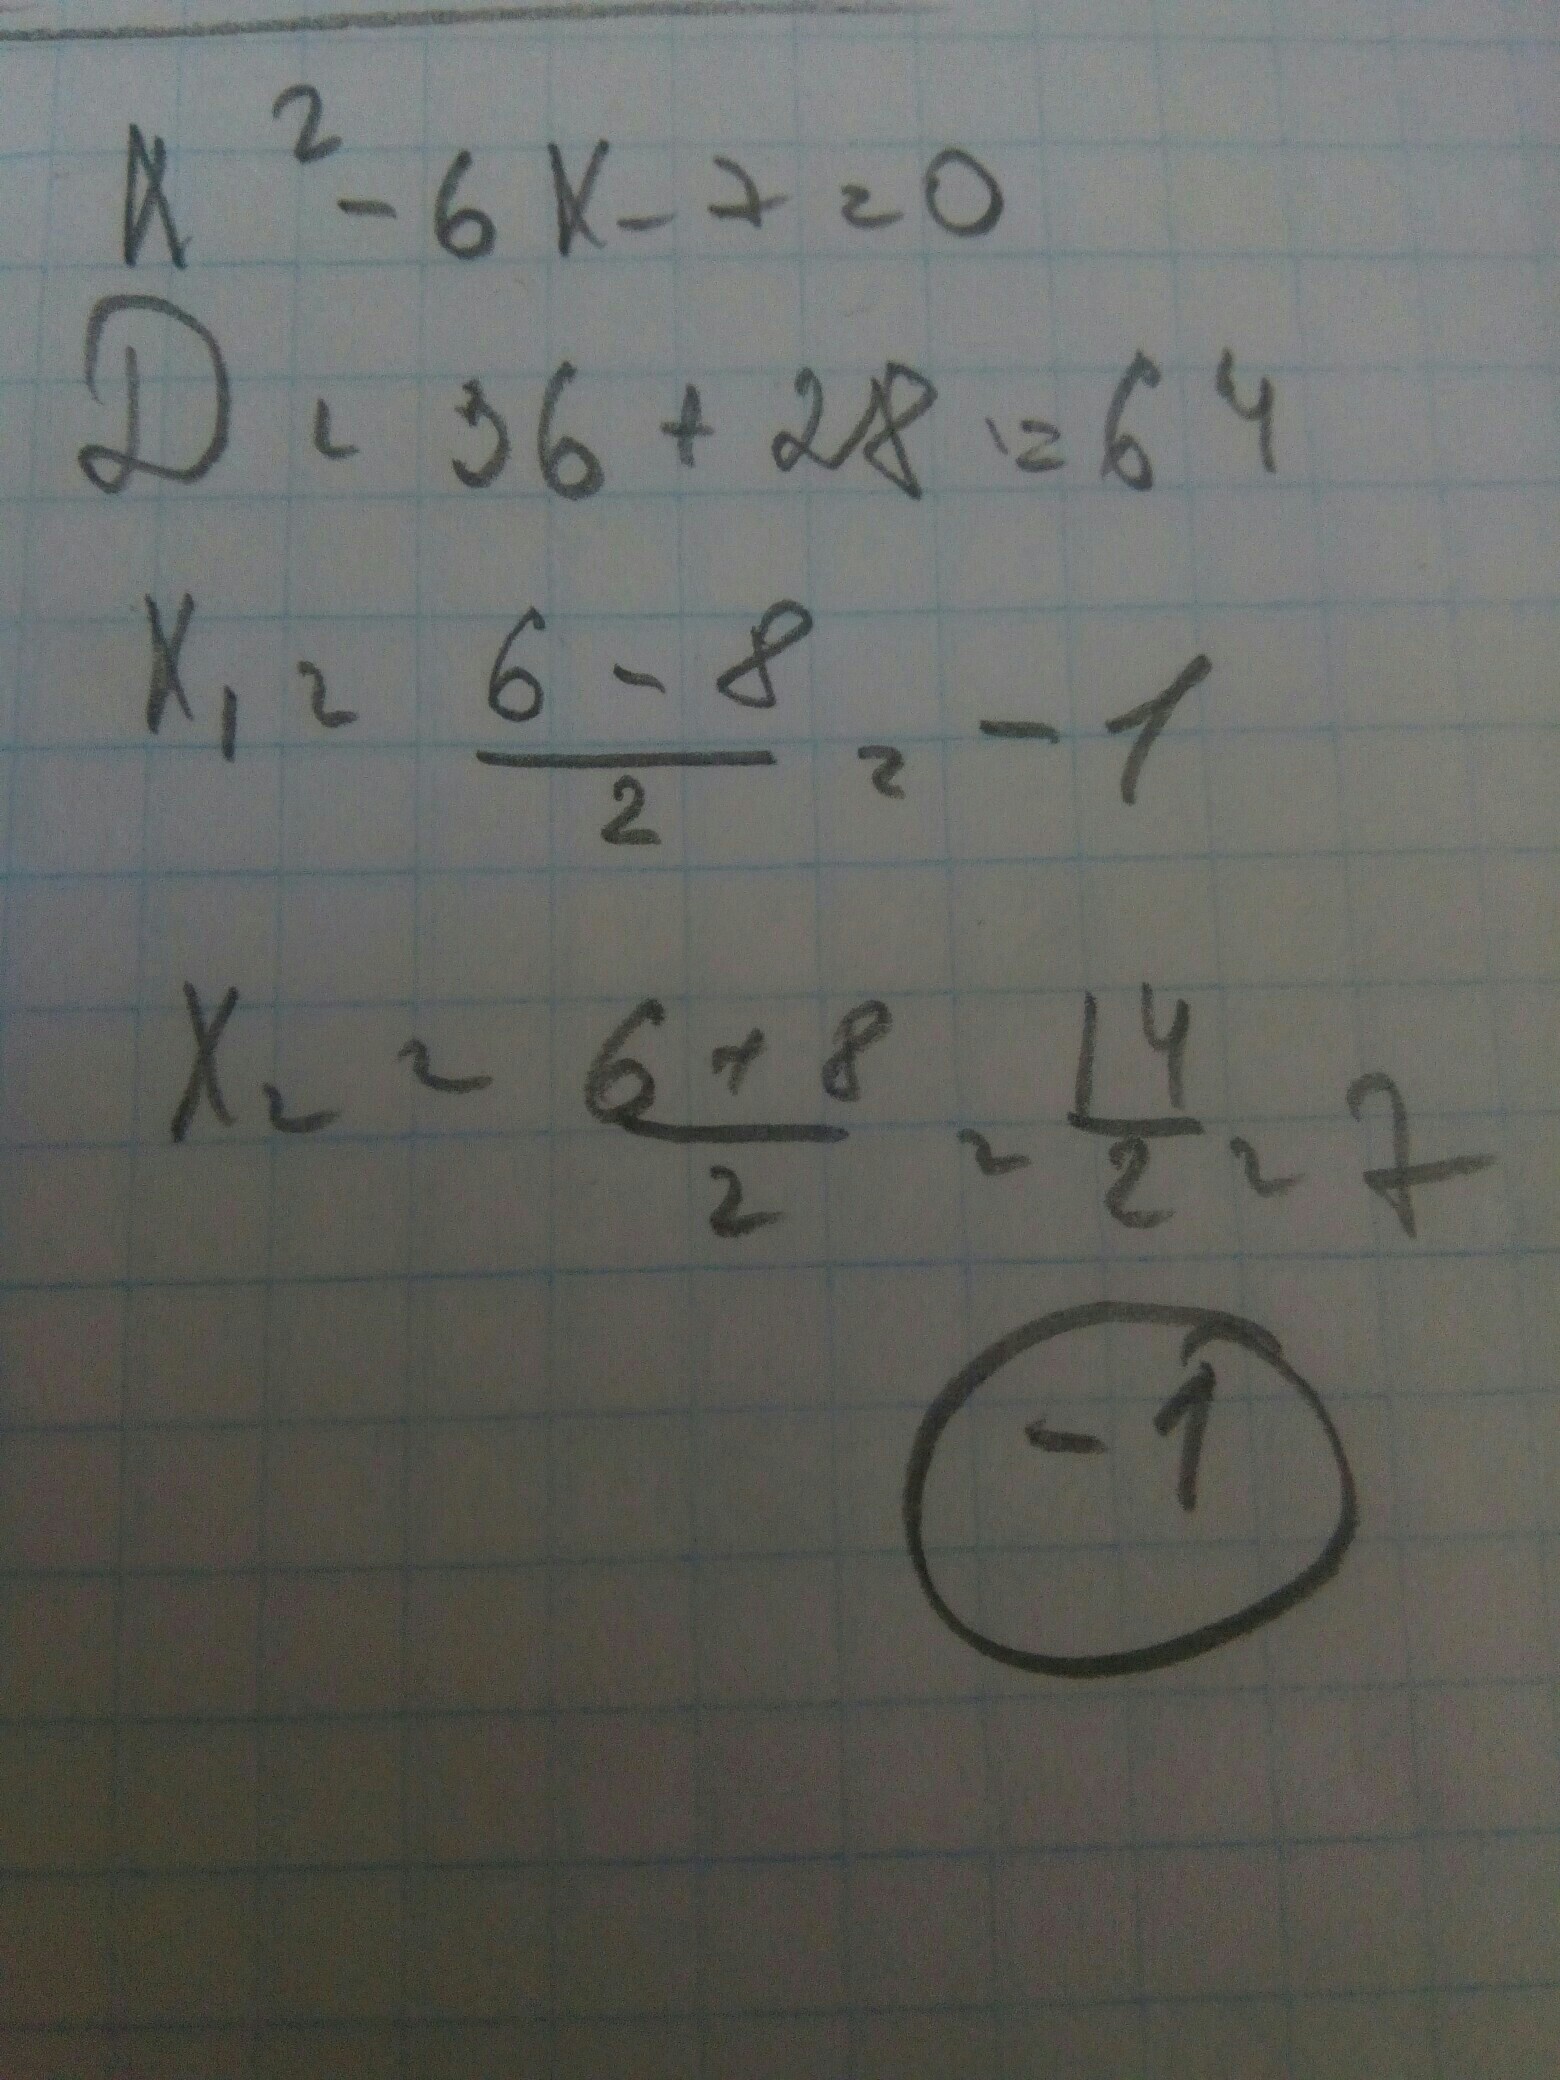 x² - 6x - 7 = 0
D = 36 + 28 = 64
x₁ = (6 - 8)/2 = -1
x₂ = (6 + 8)/2 = 14/2 = 7
-1